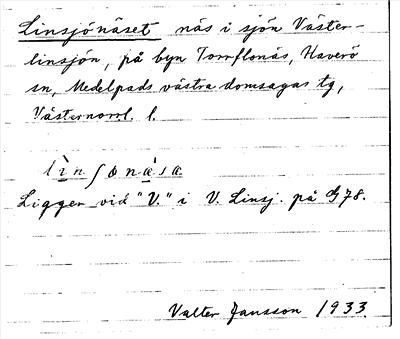 Linsjönäset näs i sjön Väster-
linsjön, på byn Torrflonäs, Haverö
sn, Medelpads västra domsagas tg,
Västernorrl. l.
Ligger vid "V." i V. Linsj. på G 78.
Valter Jansson 1933.